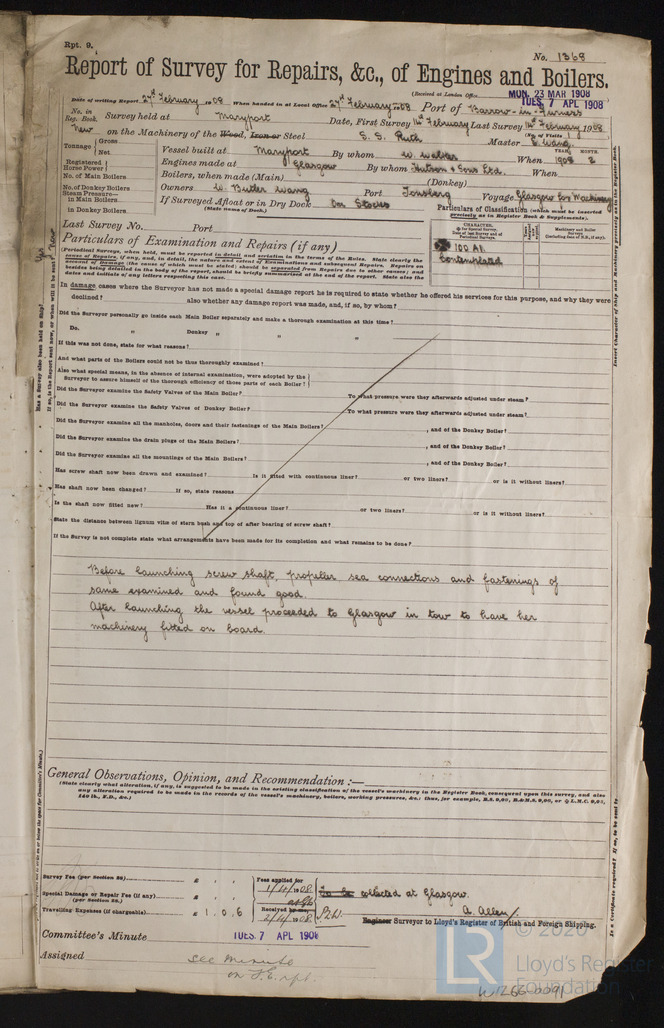 Rpt. 9.
No. 1368
Report of Survey for Repairs, &c., of Engines and Boilers.
(Received at London Office MON. 23 MAR 1908
TUES. 7 APL 1908
Date of writing Report 27th February 1908 When handed in at Local Office 27th February 1908 Port of Barrow-in-Furness
No. in Reg. Book. Survey held at Maryport Date, First Survey 14th February Last Survey 14th February 1908
New on the Machinery of the Wood, Iron or Steel S.S. Ruth Master
(No. of Visits 1
Tonnage Gross Net Vessel built at Maryport By whom W. Walker When 1908 2
YEAR. MONTH.
Registered Horse Power Engines made at Glasgow By whom Hutson & Sons Ltd. When
No. of Main Boilers Boilers, when made (Main) (Donkey)
No. of Donkey Boilers Owners Port Tonsberg Voyage Glasgow for Machinery
Steam Pressure in Main Boilers If Surveyed Afloat or in Dry Dock On Stocks
(State name of Dock.)
in Donkey Boilers
Particulars of Classification (which must be inserted precisely as in Register Book & Supplements).
Last Survey No. Port
CHARACTER.
100 A1
Contemplated
Particulars of Examination and Repairs (if any)
(Periodical Surveys, when held, must be reported in detail and seriatim in the terms of the Rules. State clearly the cause of Repairs, if any, and, in detail, the nature and extent of Examinations and subsequent Repairs. Repairs on account of Damage (the cause of which must be stated) should be separated from Repairs due to other causes; and besides being detailed in the body of the report, should be briefly summarised at the end of the report. State also the dates and initials of any letters respecting this case.
In damage cases where the Surveyor has not made a special damage report he is required to state whether he offered his services for this purpose, and why they were
declined? also whether any damage report was made, and, if so, by whom?
Did the Surveyor personally go inside each Main Boiler separately and make a thorough examination at this time?
Do. " Donkey " " " "
If this was not done, state for what reasons?
And what parts of the Boilers could not be thus thoroughly examined?
Also what special means, in the absence of internal examination, were adopted by the
Surveyor to assure himself of the thorough efficiency of those parts of each Boiler?
Did the Surveyor examine the Safety Valves of the Main Boiler? To what pressure were they afterwards adjusted under steam?
Did the Surveyor examine the Safety Valves of Donkey Boiler? To what pressure were they afterwards adjusted under steam?
Did the Surveyor examine all the manholes, doors and their fastenings of the Main Boilers? , and of the Donkey Boiler?
Did the Surveyor examine the drain plugs of the Main Boilers? , and of the Donkey Boiler?
Did the Surveyor examine all the mountings of the Main Boilers? , and of the Donkey Boiler?
Has screw shaft now been drawn and examined? Is it fitted with continuous liner? or two liners? or is it without liners?
Has shaft now been changed? If so, state reasons
Is the shaft now fitted new? Has it a continuous liner? or two liners? or is it without liners?
State the distance between lignum vitæ of stern bush and top of after bearing of screw shaft?
If the Survey is not complete state what arrangements have been made for its completion and what remains to be done?
Before launching screw shaft, propeller sea connections and fastenings of
same examined and found good.
After launching the vessel proceeded to Glasgow in tow to have her
machinery fitted on board.
General Observations, Opinion, and Recommendation :—
(State clearly what alteration, if any, is suggested to be made in the existing classification of the vessel's machinery in the Register Book, consequent upon this survey, and also
any alteration required to be made in the records of the vessel's machinery, boilers, working pressures, &c.: thus, for example, B.S. 9,00, B.&M.S. 9,00, or L.M.C. 9,00,
140 lb., F.D., &c.)
Survey Fee (per Section 28) £
Fees applied for
1/4/1908
Special Damage or Repair Fee (if any) £
(per Section 28.)
To be collected at Glasgow.
Received by me,
2/4/1908
Travelling Expenses (if chargeable) £ 1.0.6
A. Allen
Engineer Surveyor to Lloyd's Register of British and Foreign Shipping.
Committee's Minute TUES. 7 APL 1908
Assigned see minute
on F.E. rpt.
© 2020
LR
Lloyd's Register
Foundation
W1266-0091